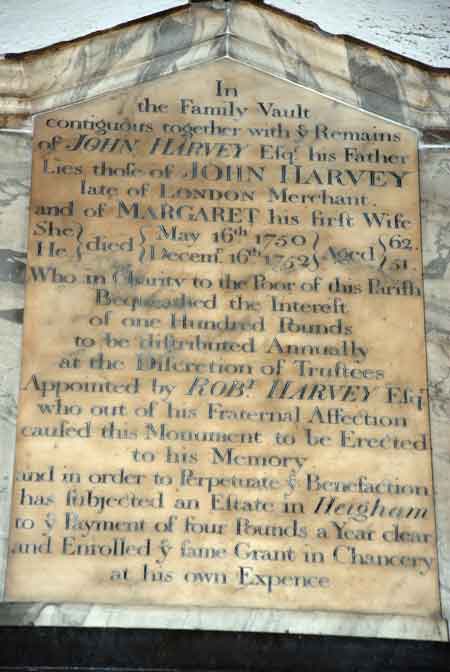 In
the Family Vault
contiguous together with yͤ Remains
of JOHN HARVEY Eſqͬ. his Father
Lies thoſe of JOHN HARVEY
late of LONDON Merchant.
and of MARGARET his firſt Wife
She } died { May 16th 1750 } Aged { 62.
He } died { Decemͬ. 16th 1752 } Aged { 51.
Who in Charity to the Poor of this Pariſh
Bequeathed the Intereſt
of one Hundred Pounds
to be diſtributed Annually
at the Diſcretion of Truſtees
Appointed by ROBͭ. HARVEY Eſqͬ
who out of his Fraternal Affection
cauſed this Monument to be Erected
to his Memory
and in order to Perpetuate yͤ Benefaction
has ſubjected an Eſtate in Heigham
to yͤ Payment of four Pounds a Year clear
and Enrolled yͤ ſame Grant in Chancery
at his own Expence